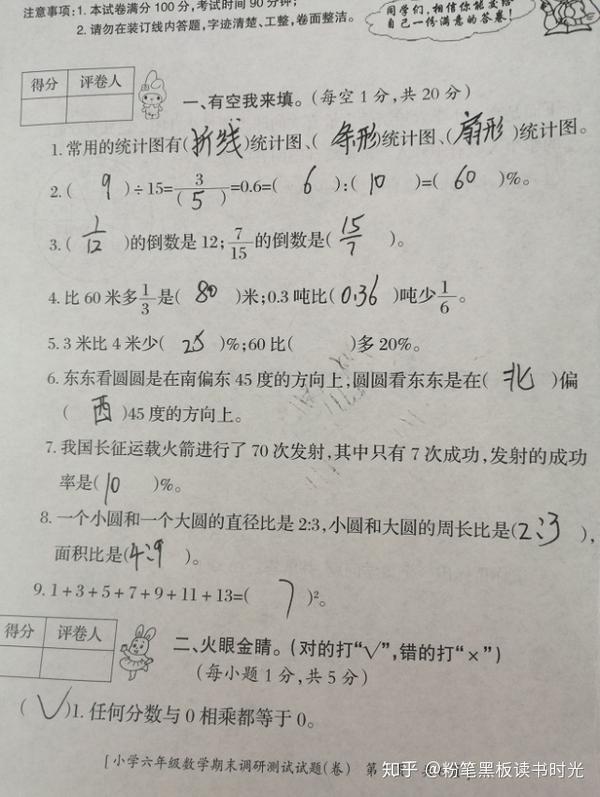 注意事项:1.本试卷满分100分,考试时间90分钟;
2.请勿在装订线内答题,字迹清楚、工整,卷面整洁。
同学们,相信你能交给
自己一份满意的答卷!
得分 评卷人
一、有空我来填。(每空1分,共20分)
1.常用的统计图有(折线)统计图、(条形)统计图、(扇形)统计图。
2.( 9 )÷15=3/( 5 )=0.6=( 6 ):( 10 )=( 60 )%。
3.( 1/12 )的倒数是12;7/15的倒数是( 15/7 )。
4.比60米多1/3是( 80 )米;0.3吨比( 0.36 )吨少1/6。
5.3米比4米少( 25 )%;60比( )多20%。
6.东东看圆圆是在南偏东45度的方向上,圆圆看东东是在( 北 )偏
( 西 )45度的方向上。
7.我国长征运载火箭进行了70次发射,其中只有7次成功,发射的成功
率是( 10 )%。
8.一个小圆和一个大圆的直径比是2:3,小圆和大圆的周长比是(2:3),
面积比是(4:9)。
9.1+3+5+7+9+11+13=( 7 )²。
得分 评卷人
二、火眼金睛。(对的打“√”,错的打“×”)
(每小题1分,共5分)
( √ )1.任何分数与0相乘都等于0。
[小学六年级数学期末调研测试试题(卷) 第
知乎 @粉笔黑板读书时光